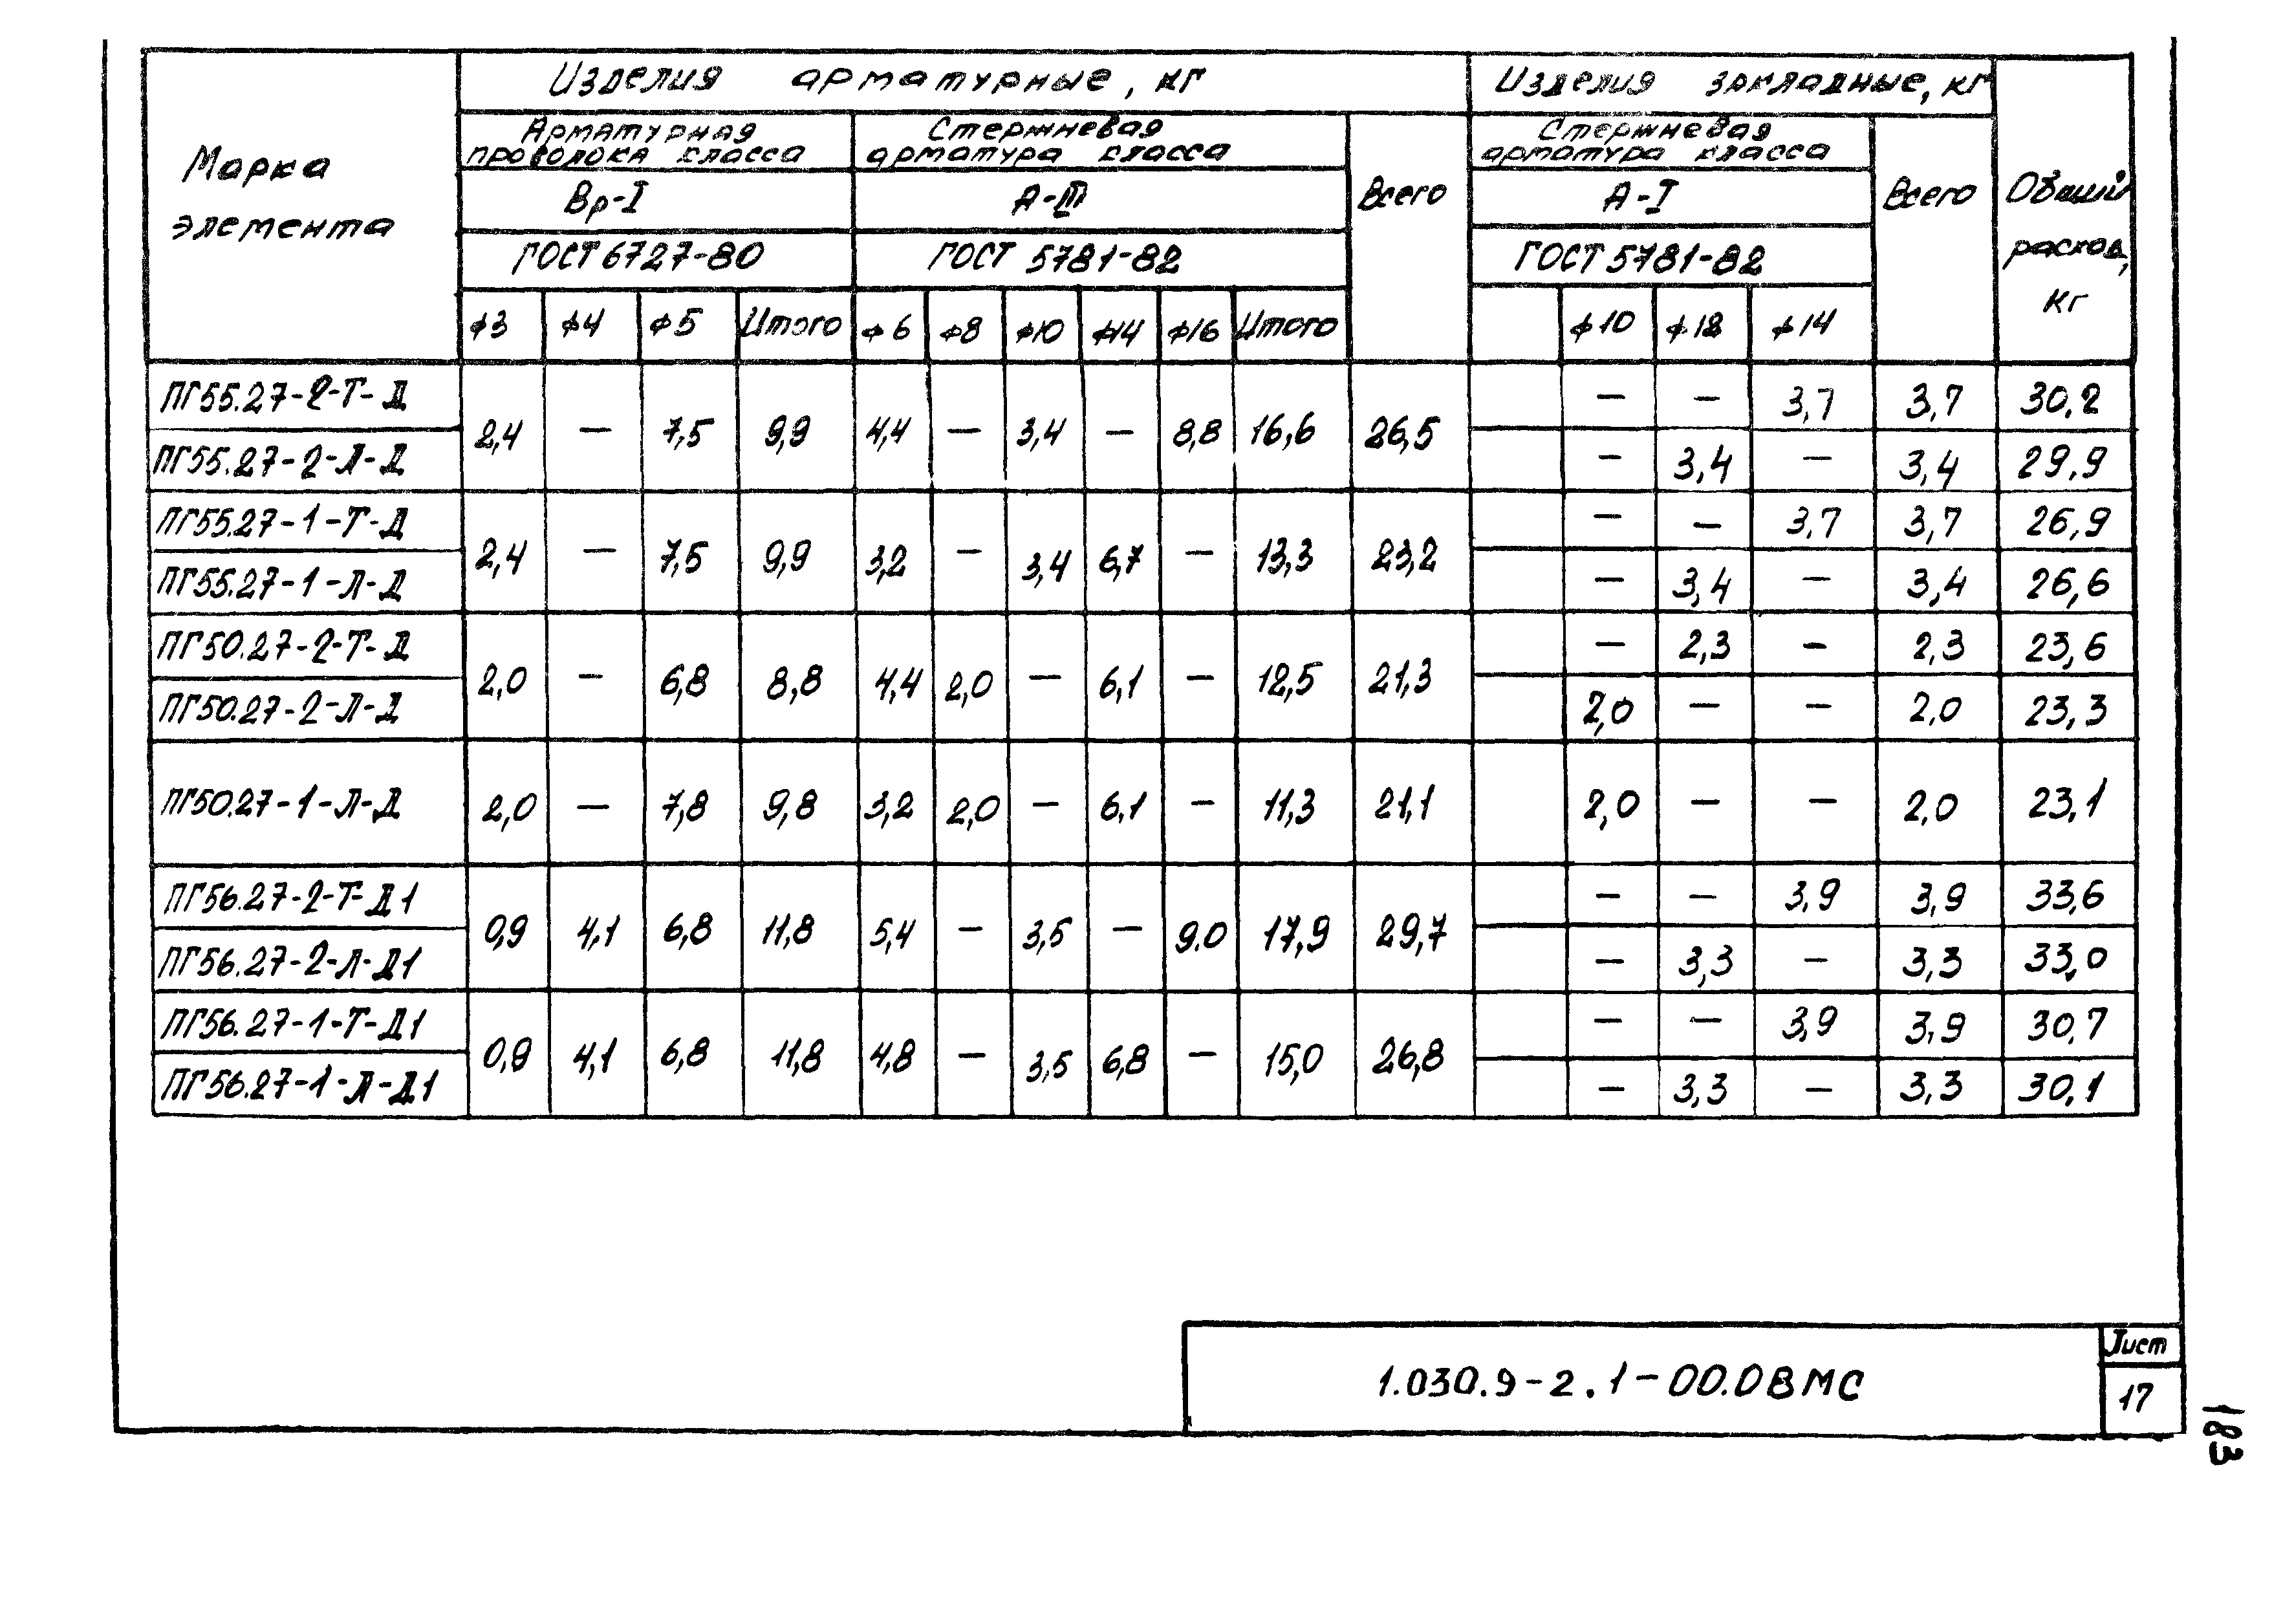 Марка элемента
Изделия арматурные, кг
Изделия закладные, кг
Общий расход, кг
Арматурная проволока класса
Стержневая арматура класса
Всего
Стержневая арматура класса
Всего
Вр-I
А-III
А-I
ГОСТ 6727-80
ГОСТ 5781-82
ГОСТ 5781-82
ф3 ф4 ф5 Итого ф6 ф8 ф10 ф14 ф16 Итого ф10 ф12 ф14
ПГ55.27-2-Т-Д 2,4 — 7,5 9,9 4,4 — 3,4 — 8,8 16,6 26,5 — — 3,7 3,7 30,2
ПГ55.27-2-Л-Д — 3,4 — 3,4 29,9
ПГ55.27-1-Т-Д 2,4 — 7,5 9,9 3,2 — 3,4 6,7 — 13,3 23,2 — — 3,7 3,7 26,9
ПГ55.27-1-Л-Д — 3,4 — 3,4 26,6
ПГ50.27-2-Т-Д 2,0 — 6,8 8,8 4,4 2,0 — 6,1 — 12,5 21,3 — 2,3 — 2,3 23,6
ПГ50.27-2-Л-Д 2,0 — — 2,0 23,3
ПГ50.27-1-Л-Д 2,0 — 7,8 9,8 3,2 2,0 — 6,1 — 11,3 21,1 2,0 — — 2,0 23,1
ПГ56.27-2-Т-Д1 0,9 4,1 6,8 11,8 5,4 — 3,5 — 9.0 17,9 29,7 — — 3,9 3,9 33,6
ПГ56.27-2-Л-Д1 — 3,3 — 3,3 33,0
ПГ56.27-1-Т-Д1 0,9 4,1 6,8 11,8 4,8 — 3,5 6,8 — 15,0 26,8 — — 3,9 3,9 30,7
ПГ56.27-1-Л-Д1 — 3,3 — 3,3 30,1
1.030.9-2.1-00.0ВМС
Лист
17
183